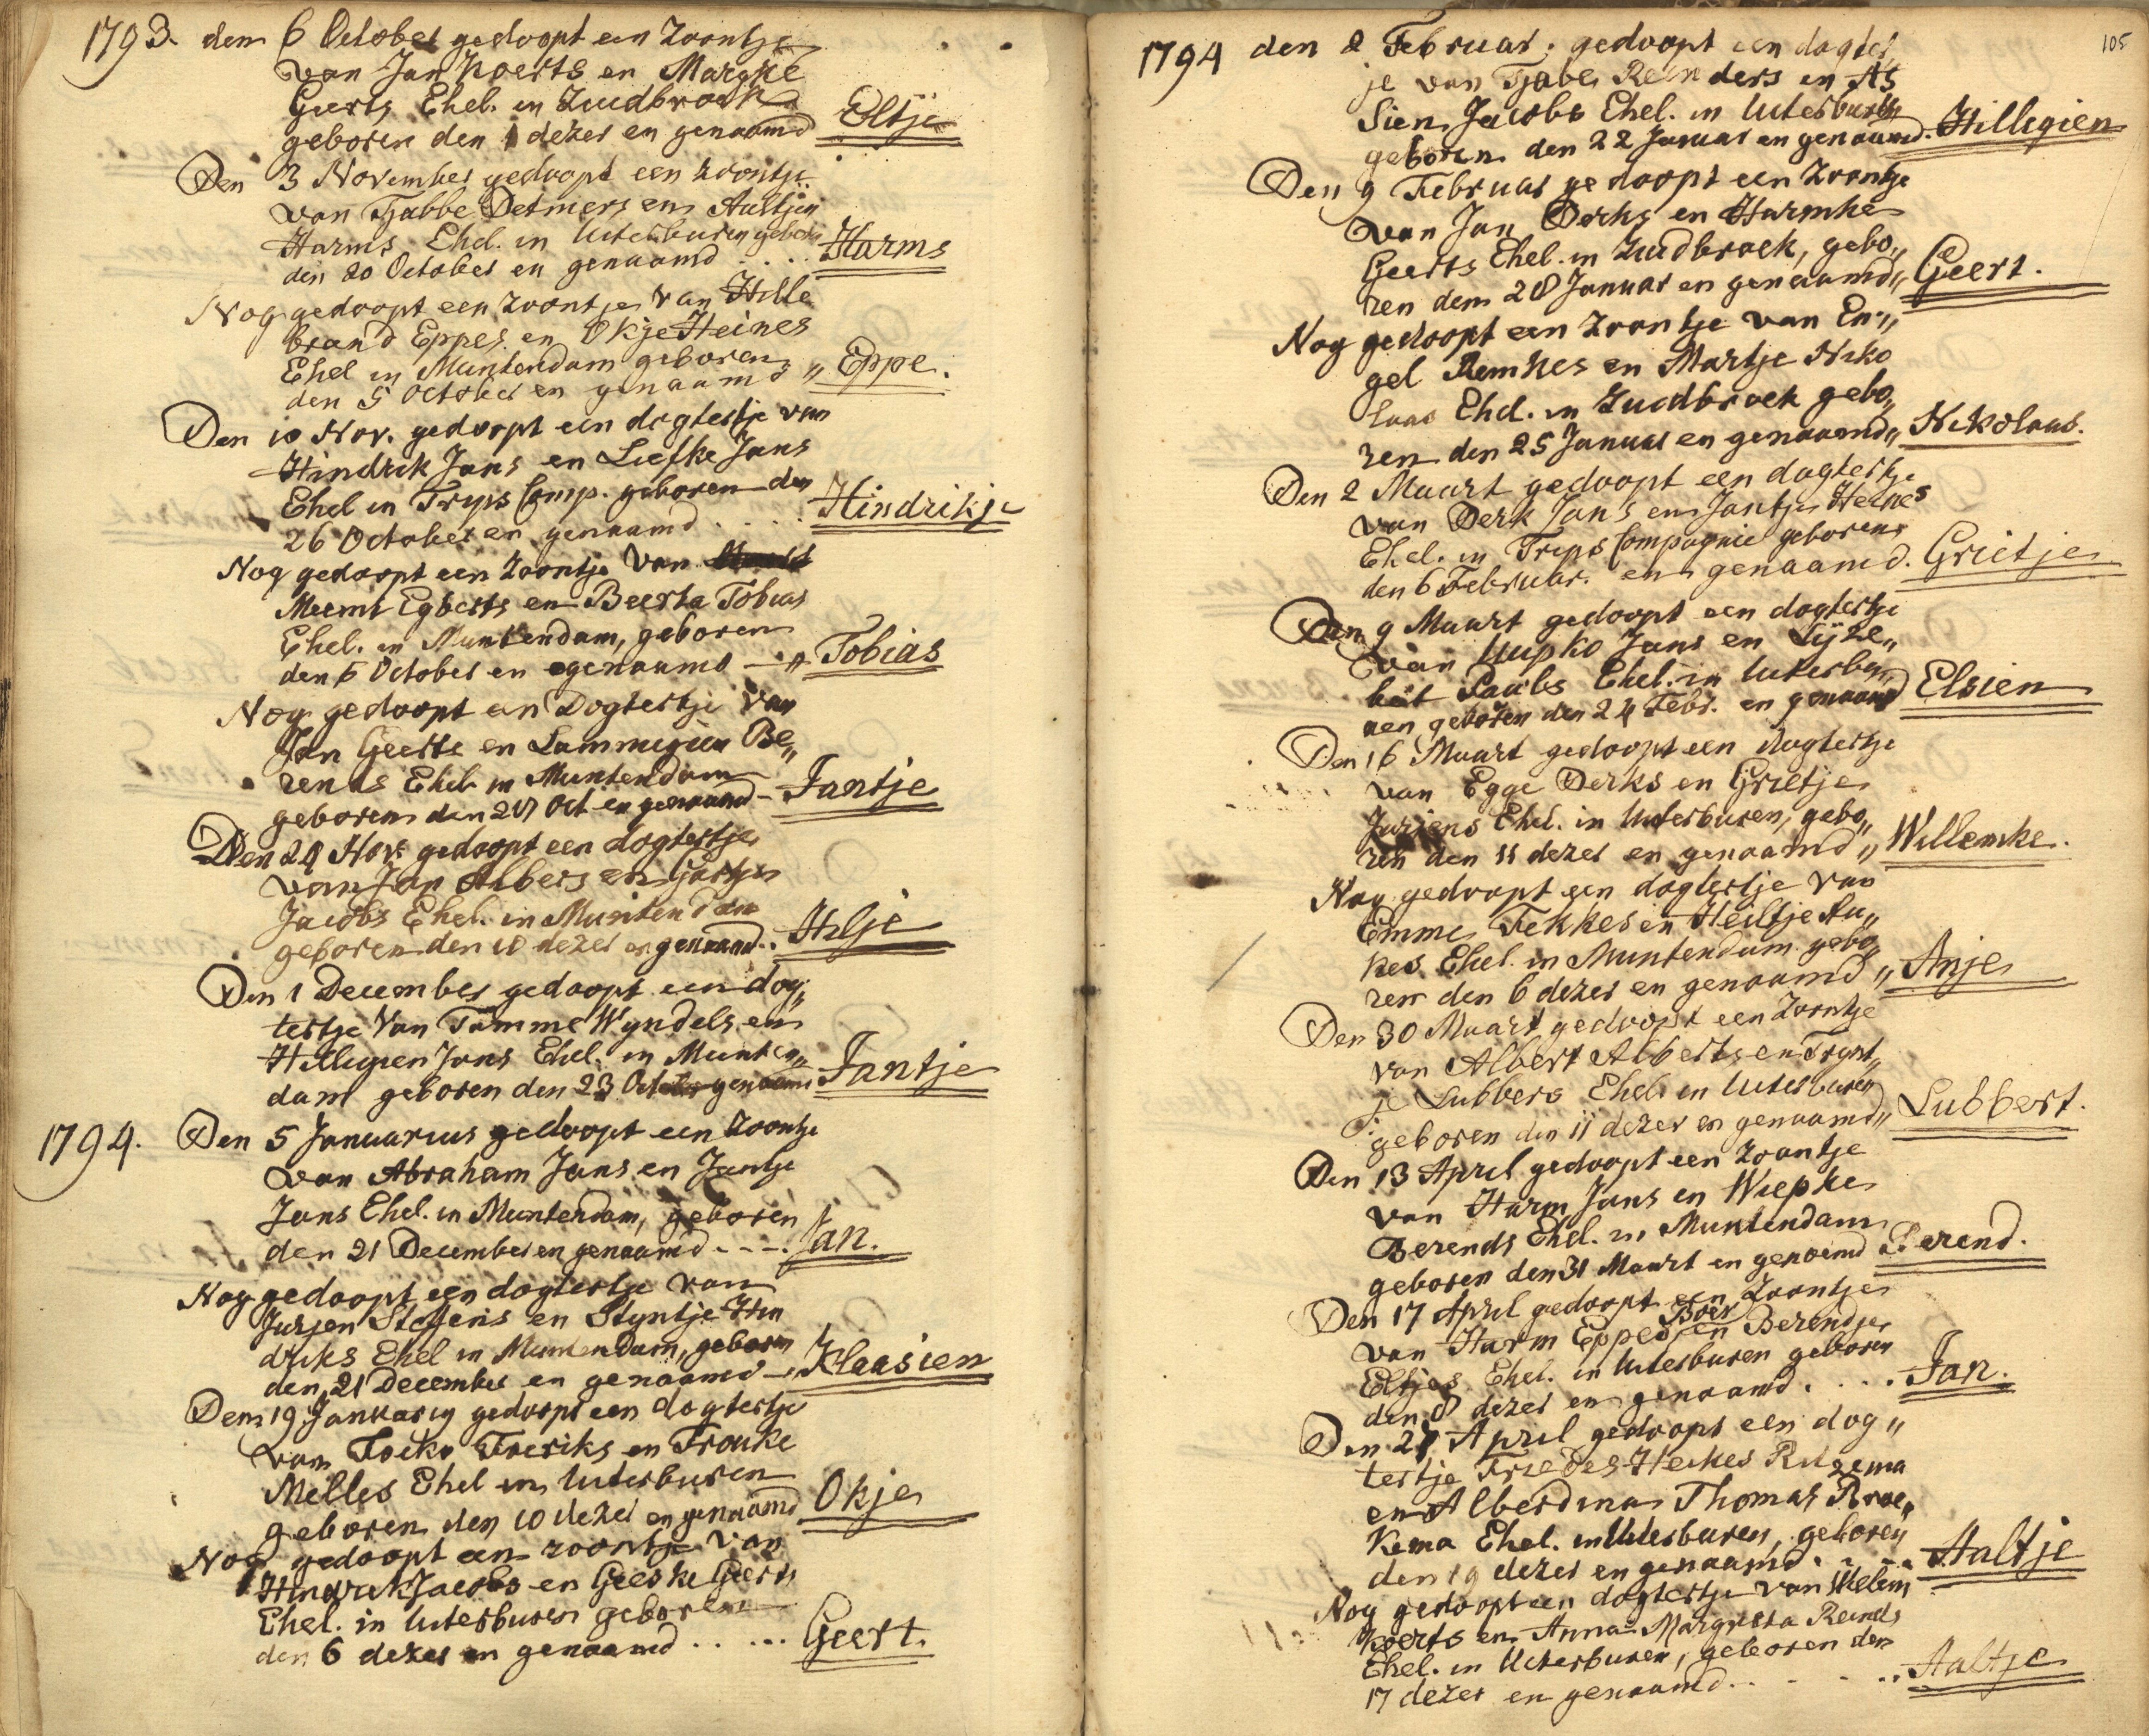 1793. den 6 October gedoopt een Zoontje
van Jan Koerts en Margke
Geerts Ehel. in Zuidbroek
geboren den 1 dezer en genaamd Eltje
Den 3 November gedoopt een zoontje
van Tjabbe Detmers en Aaltjen
Harms Ehel. in Uiterburen geboren
den 20 October en genaamd .... Harms
Nog gedoopt een zoontje van Hille
brand Eppes en Okje Heines
Ehel in Muntendam geboren
den 5 October en genaamd „ Eppe.
Den 10 Nov. gedoopt een dogtertje van
Hindrik Jans en Liefke Jans
Ehel in Trips Comp. geboren den
26 October en genaamd .... Hindrikje
Nog gedoopt een zoontje van
Meemt Egberts en Beerta Tobias
Ehel. in Muntendam, geboren
den 6 October en genaamd — „ Tobias
Nog gedoopt een Dogtertje van
Jan Geerts en Lammegien Be„
rends Ehel. in Muntendam
geboren den 27 Oct en genaamd - Jantje
Den 24 Nov. gedoopt een dogtertje
van Jan Albers en
Jacobs Ehel. in Muntendam
geboren den 10 dezer en genaamd .. Hilje
Den 1 December gedoopt een dog„
tertje van Tamme Wyndels en
Hillegien Jans Ehel. in Munten„
dam geboren den 23 October genaamd Jantje
1794. Den 5 Januarius gedoopt een zoontje
van Abraham Jans en Jantje
Jans Ehel. in Muntendam, geboren
den 21 December en genaamd - - - . Jan.
Nog gedoopt een dogtertje van
Jurjen Steffens en Styntje Hin
driks Ehel in Muntendam, geboren
den 21 December en genaamd - „ Klaasien
Den 19 January gedoopt een dogtertje
van Foeko Freriks en Frouke
Melles Ehel in Uiterburen
geboren den 10 dezer en genaamd Okje
Nog gedoopt een zoontje van
Hindrik Jacobs en Geeske Geerts
Ehel. in Uiterburen geboren
den 6 dezer en genaamd .. ... Geert.
105
1794 den 2 Februar. gedoopt een dogter
je van Tjabe Reinders en As
sien Jacobs Ehel. in Uiterburen
geboren den 22 Januar en genaamd. Hillegien
Den 9 Februar gedoopt een Zoontje
van Jan Derks en Harmke
Geerts Ehel. in Zuidbroek, gebo„
ren den 28 Januar en genaamd „ Geert.
Nog gedoopt een zoontje van En„
gel Remkes en Martje Niko
laas Ehel. in Zuidbroek gebo„
ren den 25 Januar en genaamd „ Nikolaas.
Den 2 Maart gedoopt een dogtertje
van Derk Jans en Jantje Heines
Ehel. in Trips Compagnie geboren
den 6 Februar. en genaamd. Grietje
Den 9 Maart gedoopt een dogtertje
van Uupko Jans en Lyze„
bet Pauls Ehel. in Uiterbu„
ren geboren den 24 Febr. en genaamd Elsien
Den 16 Maart gedoopt een dogtertje
van Egge Derks en Grietje
Jurjens Ehel. in Uiterburen, gebo„
ren den 11 dezer en genaamd „ Willemke.
Nog gedoopt een dogtertje van
Emme Fekkes en Heiltje Au„
kes Ehel. in Muntendam gebo„
ren den 6 dezer en genaamd „ Anje
Den 30 Maart gedoopt een zoontje
van Albert Alberts en Trynt„
je Lubbers Ehel in Uiterburen
geboren den 11 dezer en genaamd „ Lubbert.
Den 13 April gedoopt een zoontje
van Harm Jans en Wiepke
Berends Ehel. in Muntendam
geboren den 31 Maart en genoemd Berend.
Den 17 April gedoopt een Zoontje
van Harm Eppes Boer en Berendje
Eltjes Ehel. in Uiterburen geboren
den 8 dezer en genaamd. ... Jan.
Den 21 April gedoopt een dog„
tertje Heikes
en Alberdina Thomas Broe„
kema Ehel. in Uiterburen, geboren
den 19 dezer en genaamd. . - „ Aaltje
Nog gedoopt een dogtertje van Willem
Koerts en Anna Margreta Reinds
Ehel. in Uiterburen, geboren den
17 dezer en genaamd. . - - .. Aaltje